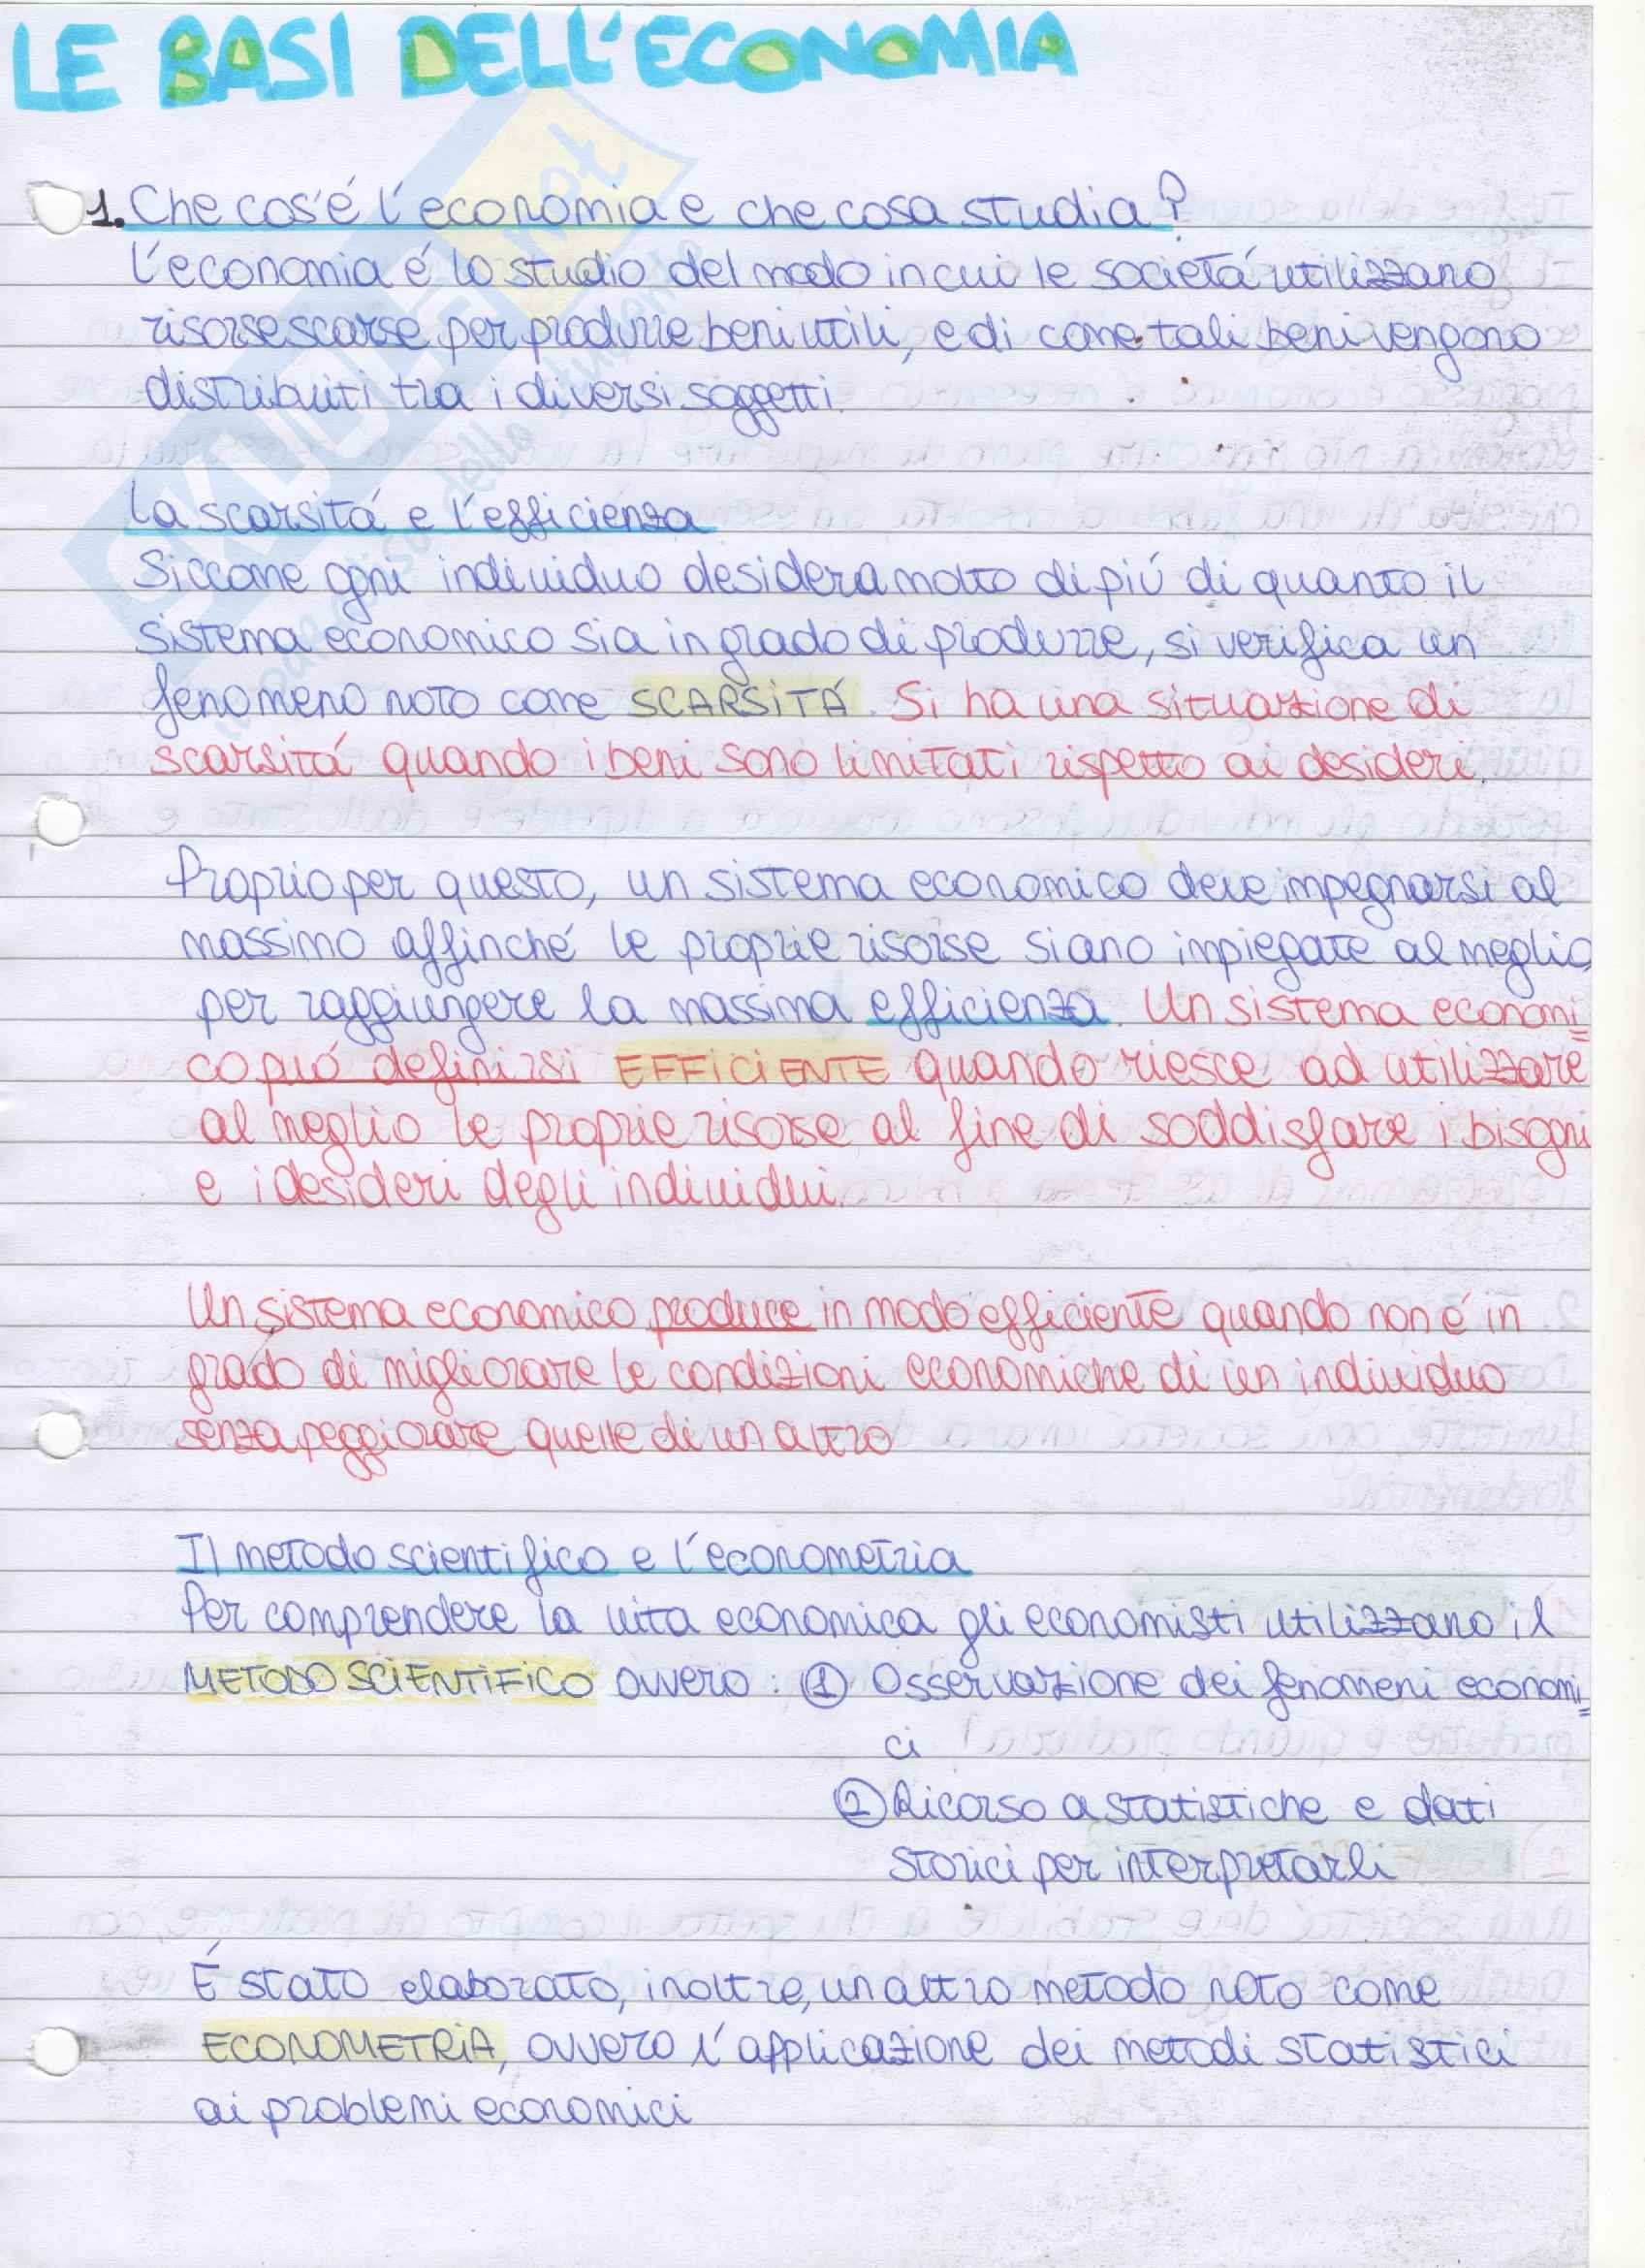 LE BASI DELL'ECONOMIA
1. Che cos'é l'economia e che cosa studia?
L'economia é lo studio del modo in cui le societá utilizzano
risorse scarse per produrre beni utili, e di come tali beni vengono
distribuiti tra i diversi soggetti.
La scarsitá e l'efficienza
Siccome ogni individuo desidera molto di piú di quanto il
sistema economico sia in grado di produrre, si verifica un
fenomeno noto come SCARSITÁ. Si ha una situazione di
scarsitá quando i beni sono limitati rispetto ai desideri.
Proprio per questo, un sistema economico deve impegnarsi al
massimo affinché le proprie risorse siano impiegate al meglio
per raggiungere la massima efficienza. Un sistema economi=
co puó definirsi EFFICIENTE quando riesce ad utilizzare
al meglio le proprie risorse al fine di soddisfare i bisogni
e i desideri degli individui.
Un sistema economico produce in modo efficiente quando non é in
grado di migliorare le condizioni economiche di un individuo
senza peggiorare quelle di un altro
Il metodo scientifico e l'econometria
Per comprendere la vita economica gli economisti utilizzano il
METODO SCIENTIFICO ovvero: ① Osservazione dei fenomeni economi=
ci
② Ricorso a statistiche e dati
storici per interpretarli
É stato elaborato, inoltre, un altro metodo noto come
ECONOMETRIA, ovvero l'applicazione dei metodi statistici
ai problemi economici